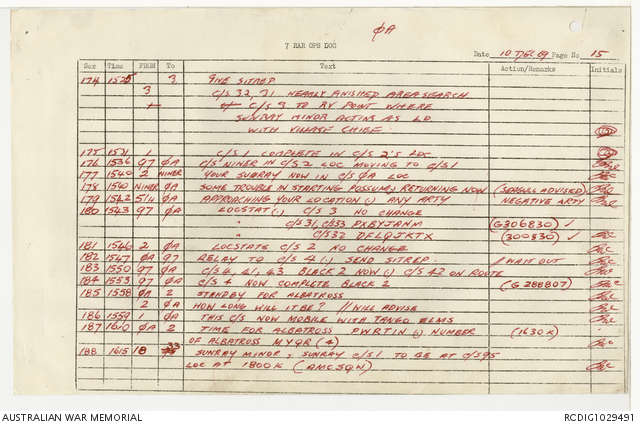 ØA
7 RAR OPS LOG
Date 10 DEC 69 Page No 15
Ser Time FROM To Text Action/Remarks Initials
174 1525 3 GIVE SITREP
3 C/S 32, 31 NEARLY FINISHED AREA SEARCH
C/S 3 TO RV POINT WHERE
SUNRAY MINOR ACTING AS LO
WITH VILLAGE CHIEF.
175 1531 1 C/S 1 COMPLETE IN C/S 2'S LOC
176 1536 97 ØA C/S NINER IN C/S 2 LOC MOVING TO C/S 1
177 1540 2 NINER YOUR SUNRAY NOW IN C/S ØA LOC
178 1540 NINER ØA SOME TROUBLE IN STARTING POSSUM, RETURNING NOW (SEAGULL ADVISED)
179 1542 514 ØA APPROACHING YOUR LOCATION (.) ANY ARTY NEGATIVE ARTY
180 1543 97 ØA LOCSTAT (.) C/S 3 NO CHANGE
" C/S 31, C/S 33 PXBYJAHN (G306830) ✓
" C/S 32 DFLQJTRTX (300830) ✓
181 1546 2 ØA LOCSTATS C/S 2 NO CHANGE
182 1547 ØA 97 RELAY TO C/S 4 (.) SEND SITREP. // WAIT OUT
183 1550 97 ØA C/S 4, 41, 43 BLACK 2 NOW (.) C/S 42 ON ROUTE
184 1553 97 ØA C/S 4 NOW COMPLETE BLACK 2 (G 288807)
185 1558 ØA 2 STANDBY FOR ALBATROSS
2 ØA HOW LONG WILL IT BE? // WILL ADVISE
186 1559 1 ØA THIS C/S NOW MOBILE WITH TANGO ELMS
187 1610 ØA 2 TIME FOR ALBATROSS PWRTIN (.) NUMBER (1630K)
OF ALBATROSS MYQR (4)
188 1615 18 33 SUNRAY MINOR, SUNRAY C/S 1 TO BE AT C/S 95
LOC AT 1800K (AMCSQN)
AUSTRALIAN WAR MEMORIAL RCDIG1029491